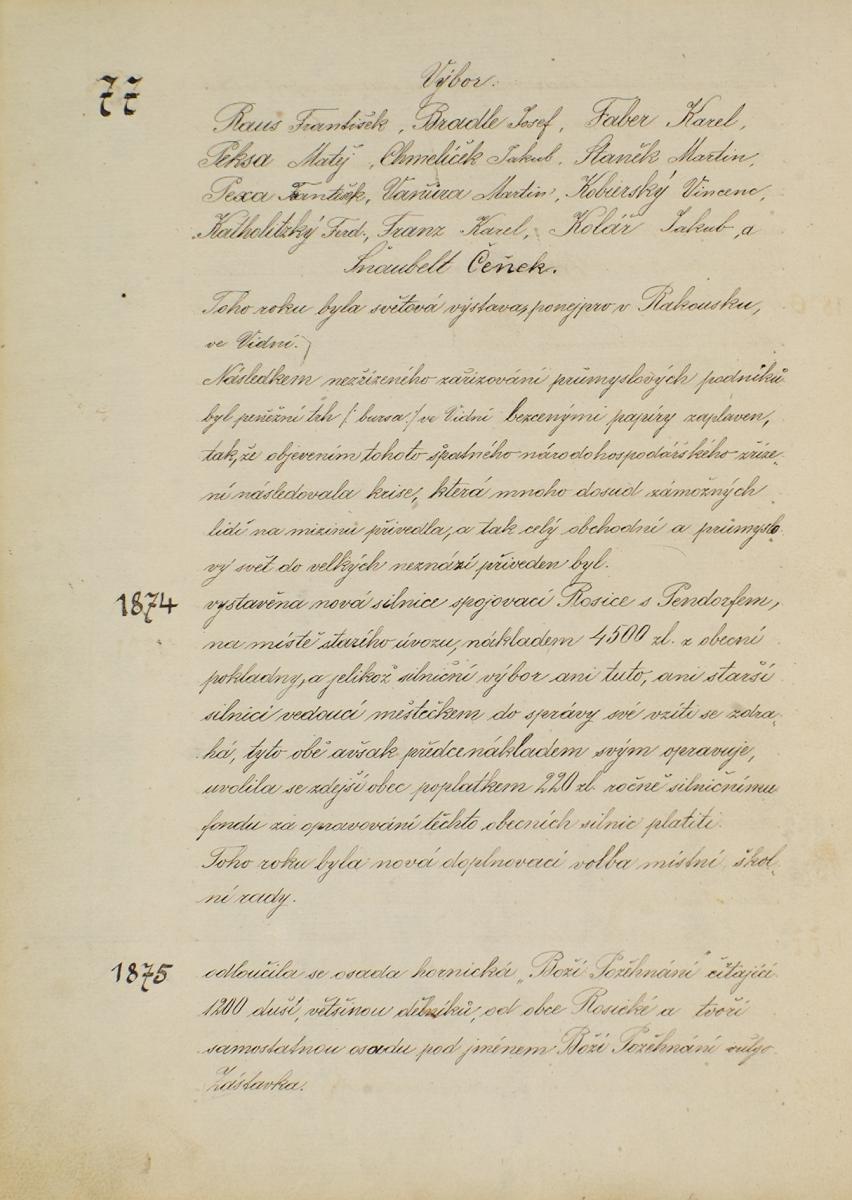 77
Výbor:
Raus František, Bradle Josef, Faber Karel,
Peksa Matěj, Chmelíček Jakub, Staněk Martin,
Pexa František, Vaňura Martin, Kobierský Vincenc,
Katholitzký Ferd., Franz Karel, Kolář Jakub, a
Šnaubelt Čeněk.
Toho roku byla světová výstava, ponejpro, v Rakousku,
ve Vídni.
Následkem nezřízeného zařizování průmyslových podniků
byl peněžní trh /: bursa :/ ve Vídni bezcenými papíry zaplaven,
tak, že objevením tohoto špatného národohospodářského zříze-
ní následovala krise, která mnoho dosud zámožných
lidí na mizinu přivedla, a tak celý obchodní a průmyslo-
vý svět do velkých neznází přiveden byl.
1874 vystavěna nová silnice spojovací Rosice s Tendorfem,
na místě starého úvozu, nákladem 4500 zl. z obecní
pokladny, a jelikož silniční výbor ani tuto, ani starší
silnici vedoucí městečkem do správy své vzíti se zdrá-
há, tyto obě avšak předce nákladem svým opravuje,
uvolila se zdejší obec poplatkem 220 zl. ročně silničnímu
fondu za opravování těchto obecních silnic platiti.
Toho roku byla nová doplnovací volba místní škol-
ní rady.
1875 odloučila se osada hornická „Boží Požehnání" čítající
1200 duší, většinou dělníků, od obce Rosické a tvoří
samostatnou osadu pod jménem Boží Požehnání vulgo
Zástavka.